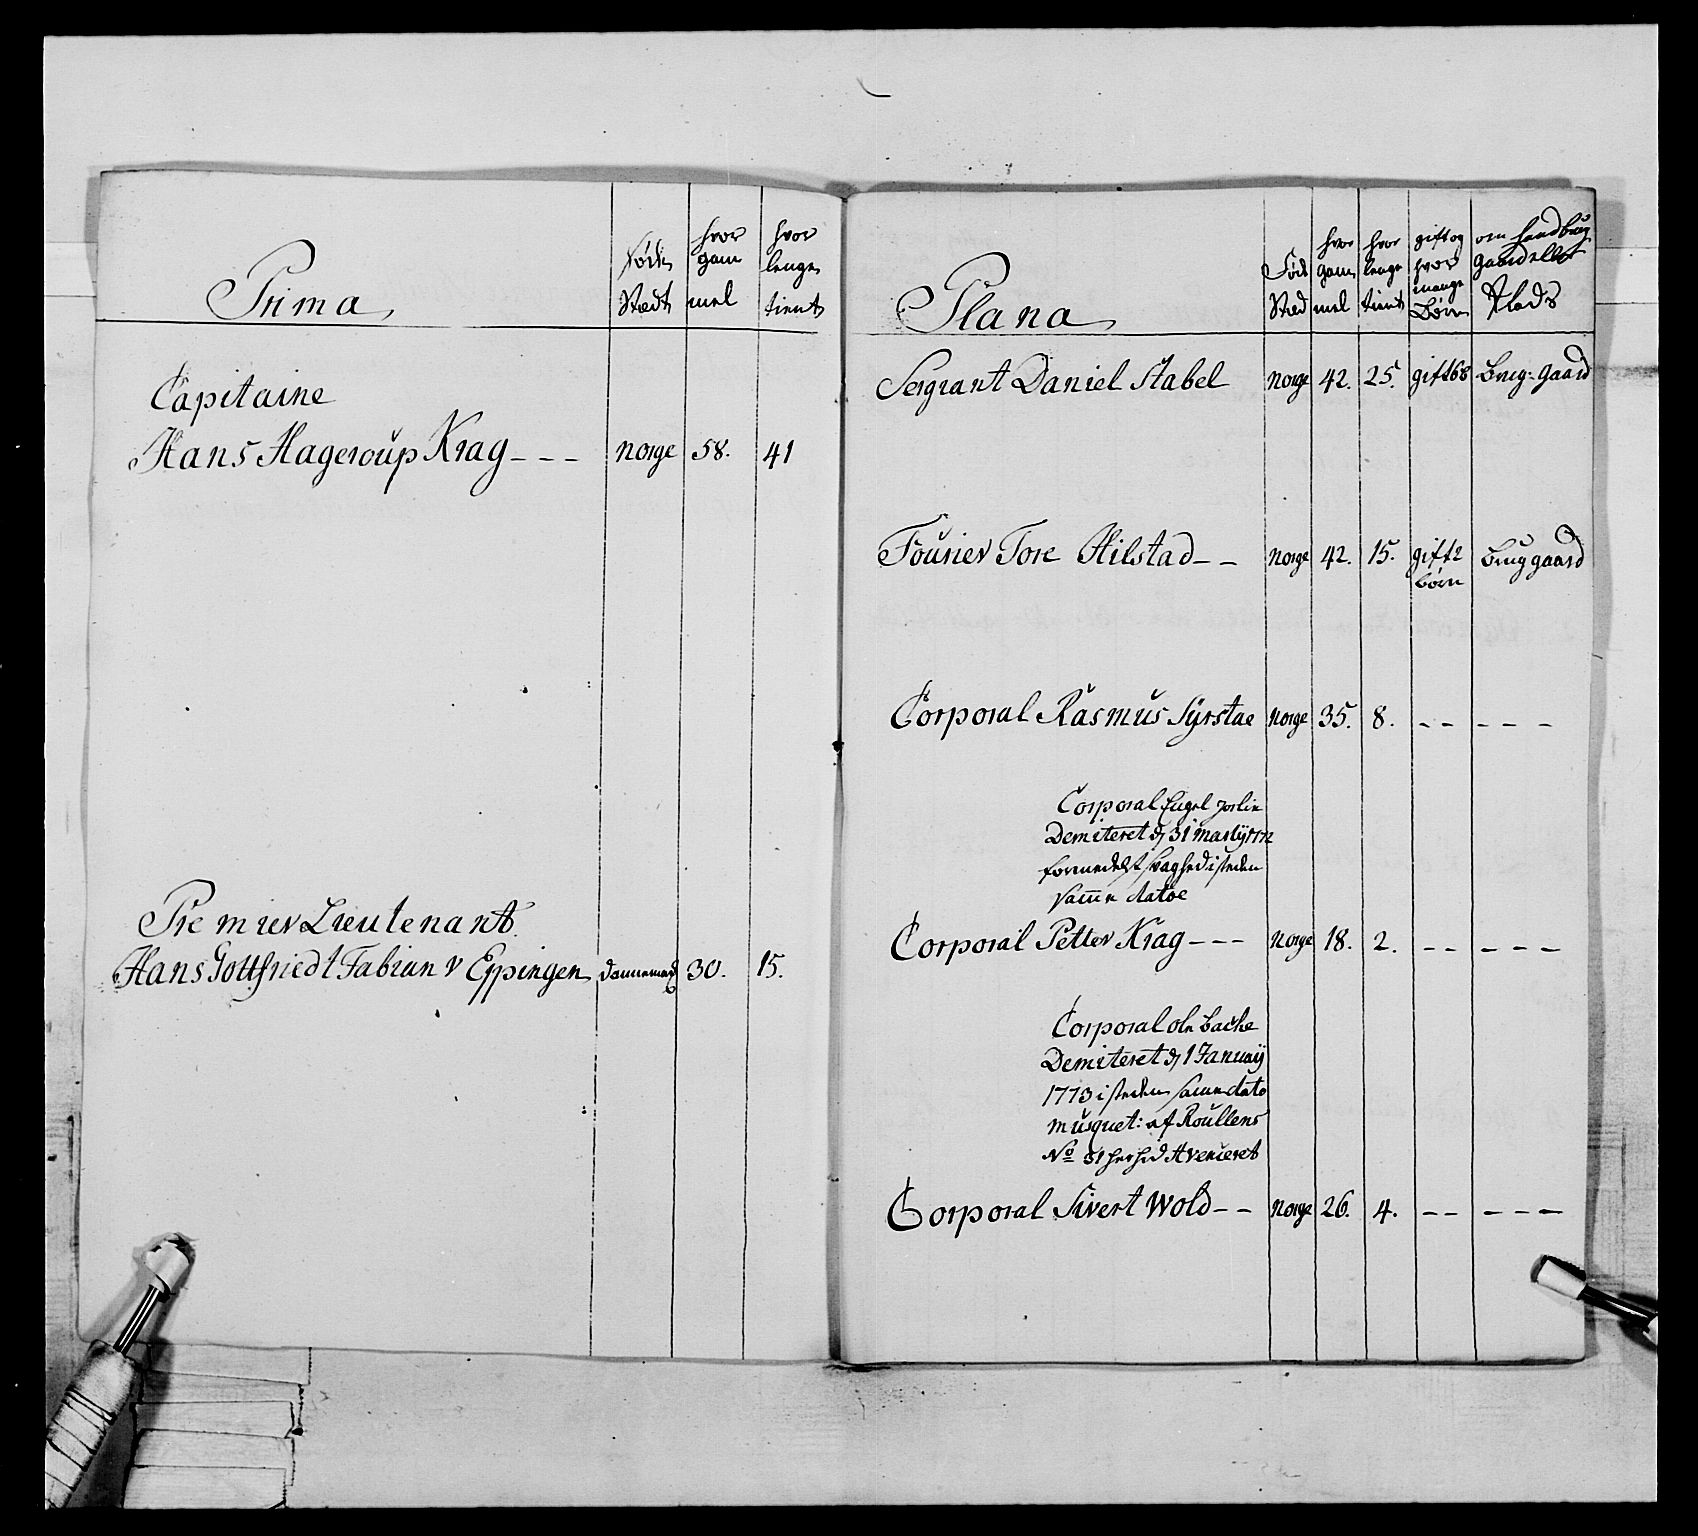 Prima
Føde Stædt
hvor gam mel
hvor lenge tient
Capitaine
Hans Hageroup Krag - - - Norge 58. 41
Premier Lieutenant
Hans Gottfriedt Fabian v Eppingen Dannemark 30. 15.
Plana
Føde Stæd
hvor gam mel
hvor lenge tient
gift og hvor mange Børn
om hand bruger gaard eller Plads
Sergeant Daniel Stabel Norge 42. 25. gift 6 B Brug: gaard
Fourier Tore Hilstad - - Norge 42. 15. gift 2 Brug gaard
børn
Corporal Rasmus Sÿrstae Norge 35. 8. - - - - -
Corporal Engel
Demiteret d 31 Martÿ 1772
formedelst svaghed i steden
samme datoe
Corporal Petter Krag - - - Norge 18. 2. - - - - -
Corporal Ole Backe
Demiteret d 1 Januarÿ
1773 i steden samme dato
Musquet: af Roullens
No 31 herhid Avencieret
Corporal Sivert Wold - - Norge 26. 4. - - - - -